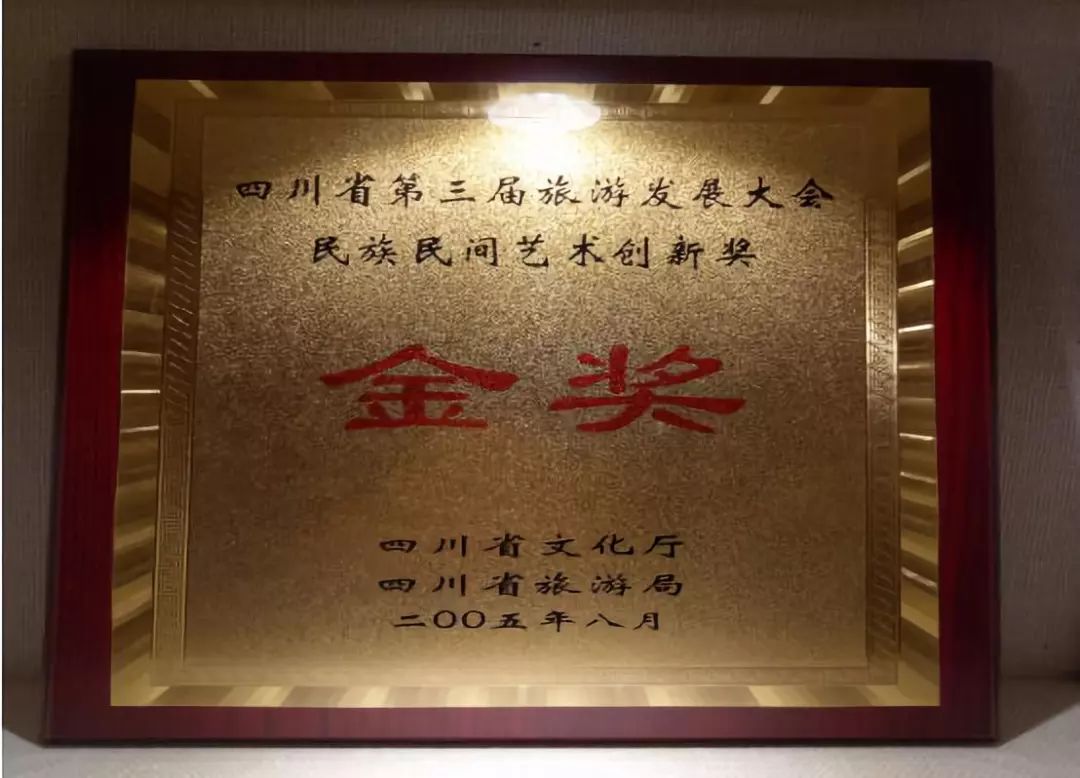 四川省第三届旅游发展大会
民族民间艺术创新奖
金奖
四川省文化厅
四川省旅游局
二〇〇五年八月